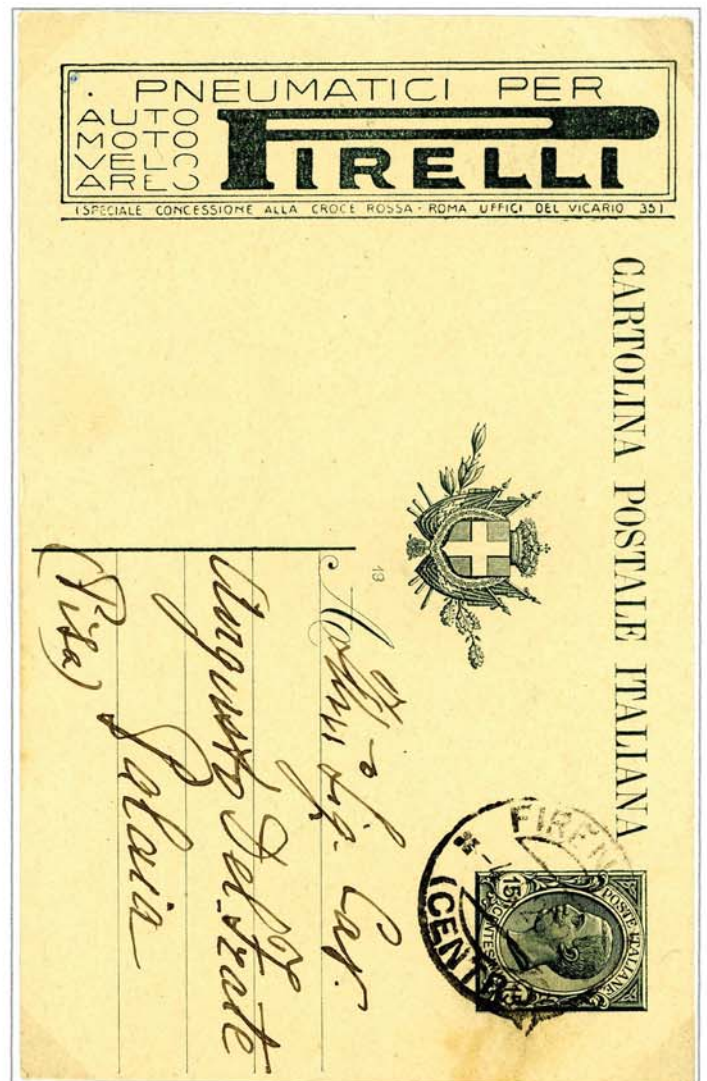 PNEUMATICI PER
AUTO
MOTO
VELO
AREO
PIRELLI
(SPECIALE CONCESSIONE ALLA CROCE ROSSA - ROMA UFFICI DEL VICARIO 35)
CARTOLINA POSTALE ITALIANA
POSTE ITALIANE
15
FIREN
(CENTR
19
Sig. Cav.
Augusto Del Frate
Palaia
(Pisa)